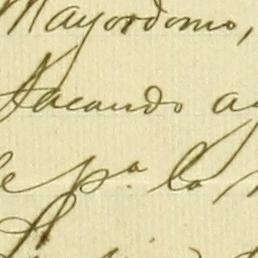 Mayordomo,
tacando a
e pª la